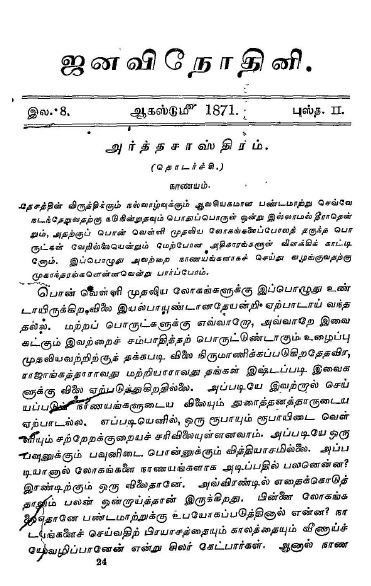 ஜனவிநோதினி.
இல. 8. ஆகஸ்டுமீ 1871. புஸ்த. II.
அர்த்தசாஸ்திரம்.
(தொடர்ச்சி.)
நாணயம்.
தேசத்தின் விருத்திக்கும் நல்வாழ்வுக்கும் ஆவசியகமான பண்டமாற்று செவ்வே
நடந்தேறுவதற்கு நடுநின்றதவும் பொதுப்பொருள் ஒன்று இல்லாமல் தீராதென்
றும், அதற்குப் பொன் வெள்ளி முதலிய லோகங்களைப்போலத் தகுந்த பொ
ருட்கள் வேறில்லையென்றும் மேற்போன அதிகாரங்களுள் விளக்கிக் காட்டி
னோம். இப்பொழுது அவற்றை நாணயங்களாகச் செய்து வழங்குவதற்கு
முகாந்தரங்களென்னவென்று பார்ப்போம்.
பொன் வெள்ளி முதலிய லோகங்களுக்கு இப்பொழுது உண்
டாயிருக்கிற விலை இயல்பாயுண்டானதேயன்றி ஏற்பாடாய் வந்த
தல்ல. மற்றப் பொருட்களுக்கு எவ்வாறோ, அவ்வாறே இவை
கட்கும் இவற்றைச் சம்பாதித்தற் பொருட்டுண்டாகும் உழைப்பு
முதலியவற்றிற்குத் தக்கபடி விலை நிருமாணிக்கப்படுகிறதேதவிர,
ராஜாங்கத்தாராவது மற்றியாராவது தங்கள் இஷ்டப்படி இவைக
ளுக்கு விலை ஏற்படுத்துகிறதில்லை. அப்படியே இவற்றால் செய்
யப்படும் நாணயங்களுடைய விலையும் துரைத்தனத்தாருடைய
ஏற்பாடல்ல. எப்படியெனில், ஒரு ரூபாயும் ரூபாயிடை வெள்
ளியும் சற்றேறக்குறையச் சரிவிலையுள்ளனவாம். அப்படியே ஒரு
பவுனுக்கும் பவுனிடைப் பொன்னுக்கும் வித்தியாசமில்லை. அப்ப
டியானால் லோகங்களை நாணயங்களாக அடிப்பதில் பலனென்ன?
இரண்டிற்கும் ஒரு விலைதானே. அவ்விரண்டில் எதைக்கொடுத்
தாலும் பலன் ஒன்றாய்த்தான் இருக்கிறது. பின்னை லோகங்க
ளைத்தானே பண்டமாற்றுக்கு உபயோகப்படுத்தினால் என்ன? நா
டயங்களைச் செய்வதிற் பிரயாசத்தையும் காலத்தையும் வீணாய்ச்
செலவழிப்பானேன் என்று சிலர் கேட்பார்கள். ஆனால் நாண
24